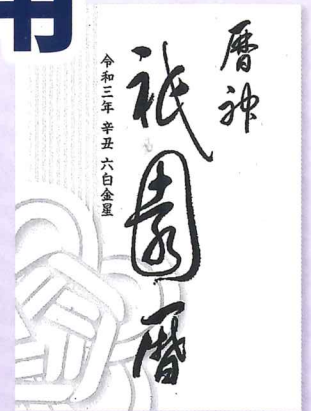 用
暦神
祇園暦
令和三年 辛丑 六白金星